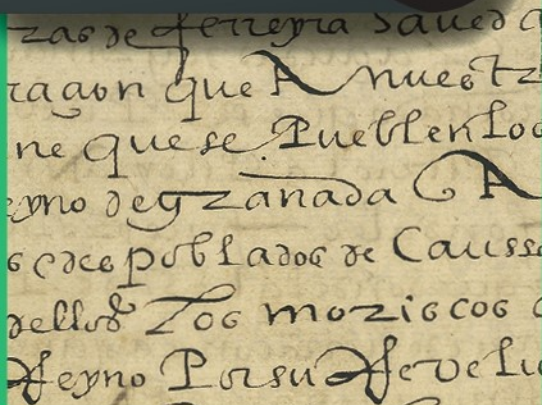 zas de ferreyra Saued
raçon que A nuestr
ne que se Pueblen los
eyno de granada A
s despoblados de Caussa
dellos Los moriscos
Reyno Por su Reuelio